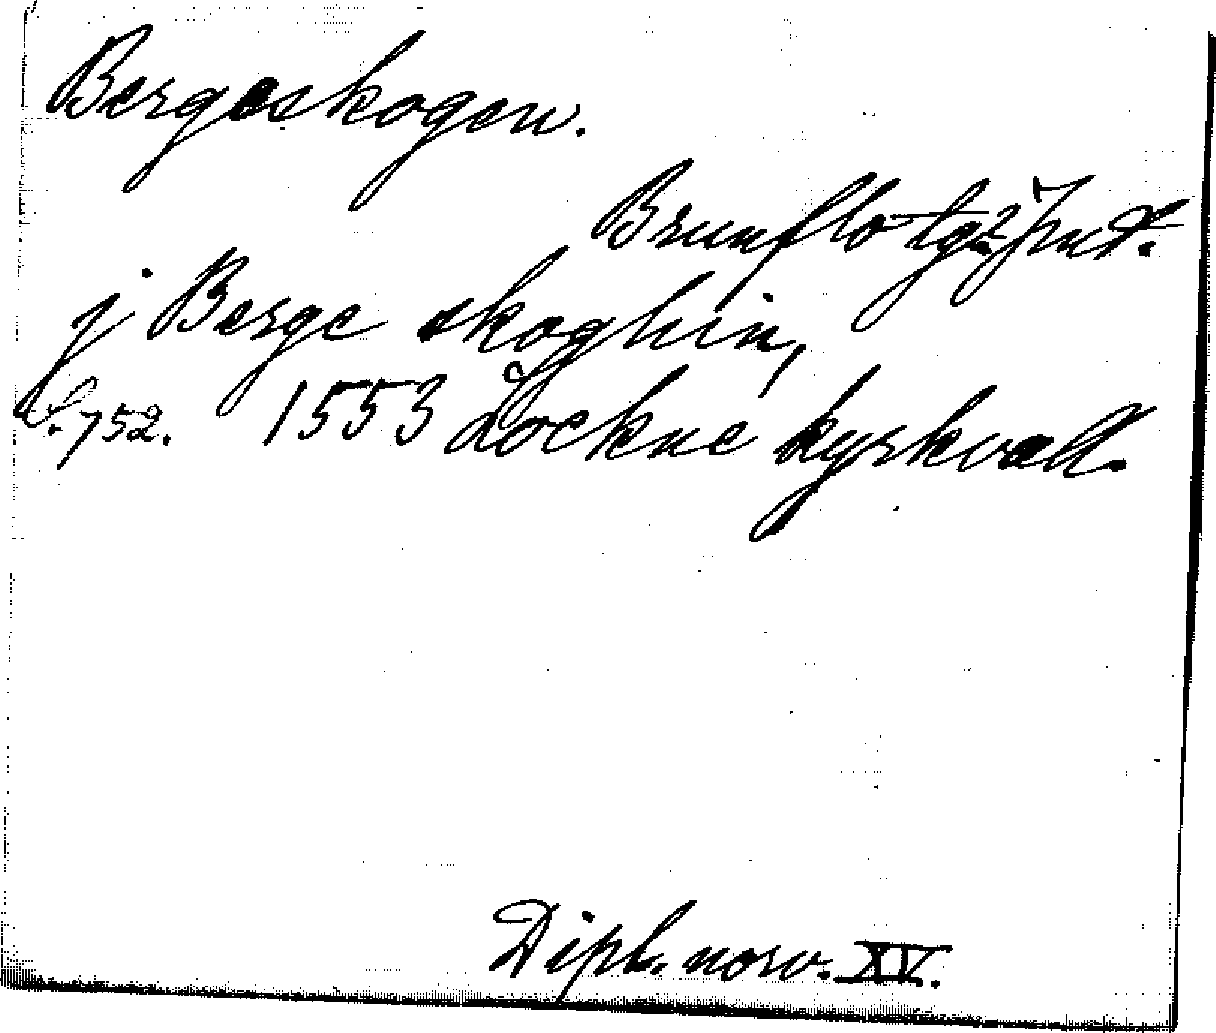 Bergeskogen.
Brunflo tg? Jmt.
j Berge skoghin,
s. 752. 1553 Lockne kyrkvall.
Dipl. norv. XV.